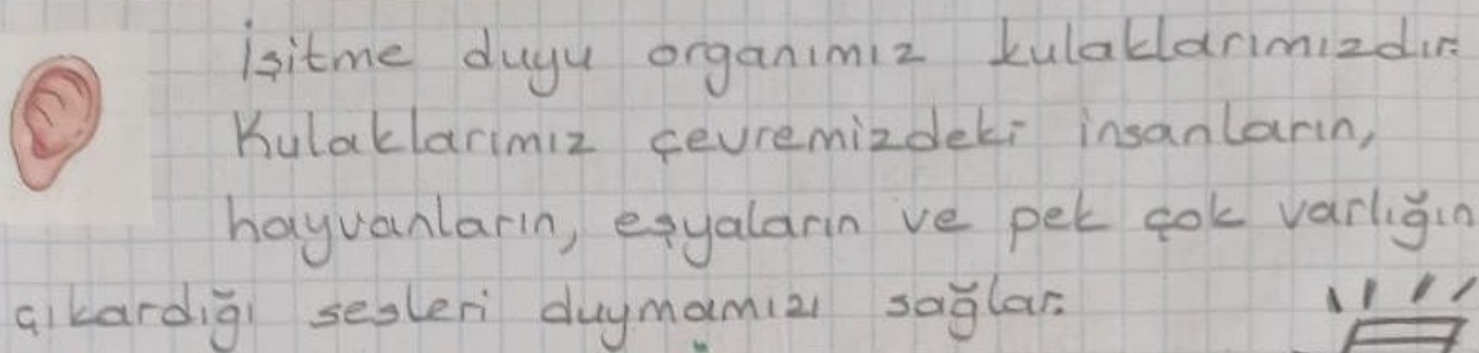 İşitme duyu organımız kulaklarımızdır.
Kulaklarımız çevremizdeki insanların,
hayvanların, eşyaların ve pek çok varlığın
çıkardığı sesleri duymamızı sağlar.